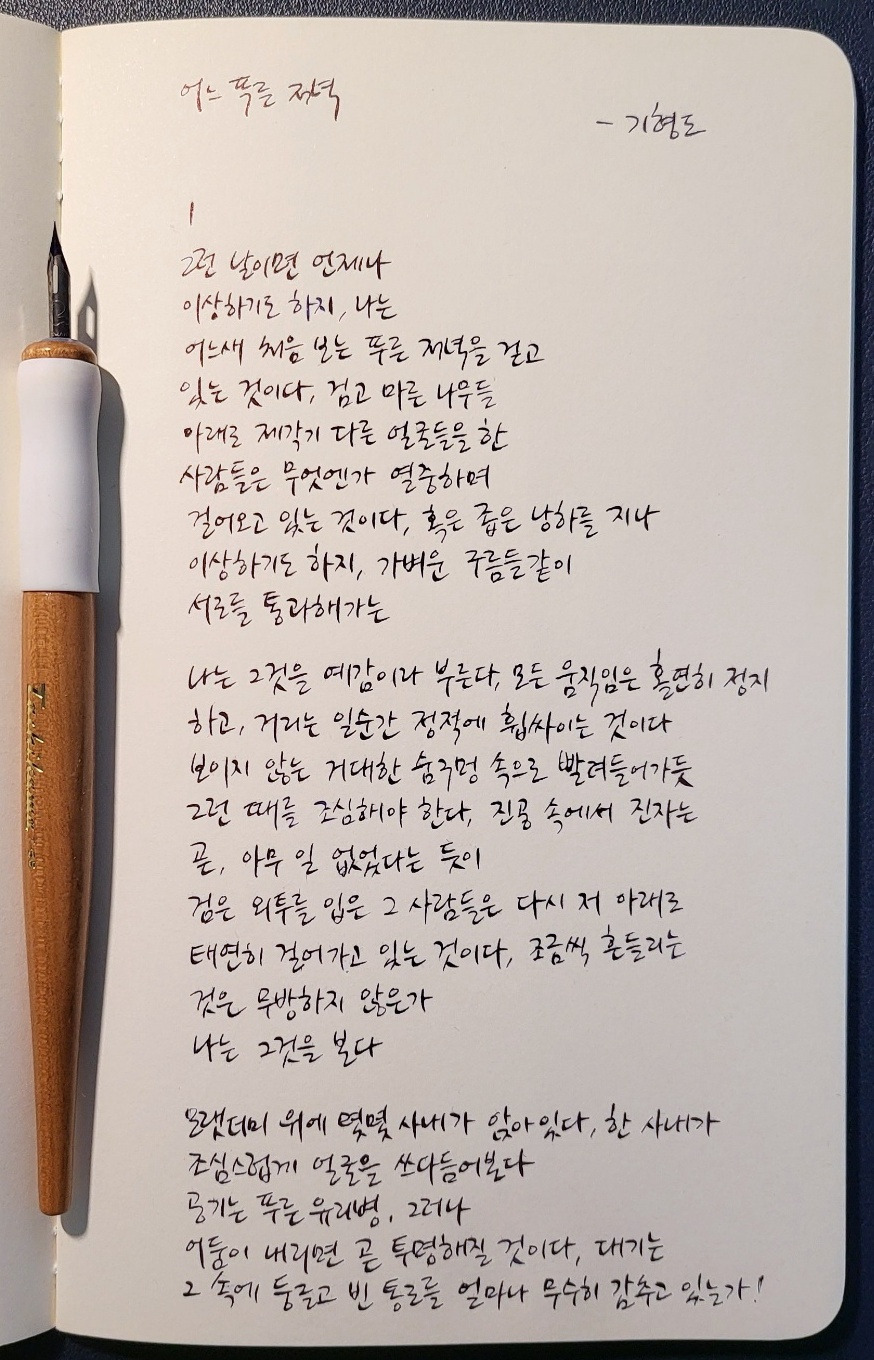 어느 푸른 저녁
- 기형도
1
그런 날이면 언제나
이상하기도 하지, 나는
어느새 처음 보는 푸른 저녁을 걷고
있는 것이다, 검고 마른 나무들
아래로 제각기 다른 얼굴들을 한
사람들은 무엇엔가 열중하며
걸어오고 있는 것이다, 혹은 좁은 낭하를 지나
이상하기도 하지, 가벼운 구름들같이
서로를 통과해가는
나는 그것을 예감이라 부른다, 모든 움직임은 홀연히 정지
하고, 거리는 일순간 정적에 휩싸이는 것이다
보이지 않는 거대한 숨구멍 속으로 빨려들어가듯
그런 때를 조심해야 한다, 진공 속에서 진자는
곧, 아무 일 없었다는 듯이
검은 외투를 입은 그 사람들은 다시 저 아래로
태연히 걸어가고 있는 것이다, 조금씩 흔들리는
것은 무방하지 않은가
나는 그것을 본다
모랫더미 위에 몇몇 사내가 앉아있다, 한 사내가
조심스럽게 얼굴을 쓰다듬어본다
공기는 푸른 유리병, 그러나
어둠이 내리면 곧 투명해질 것이다, 대기는
그 속에 둥글고 빈 통로를 얼마나 무수히 감추고 있는가!